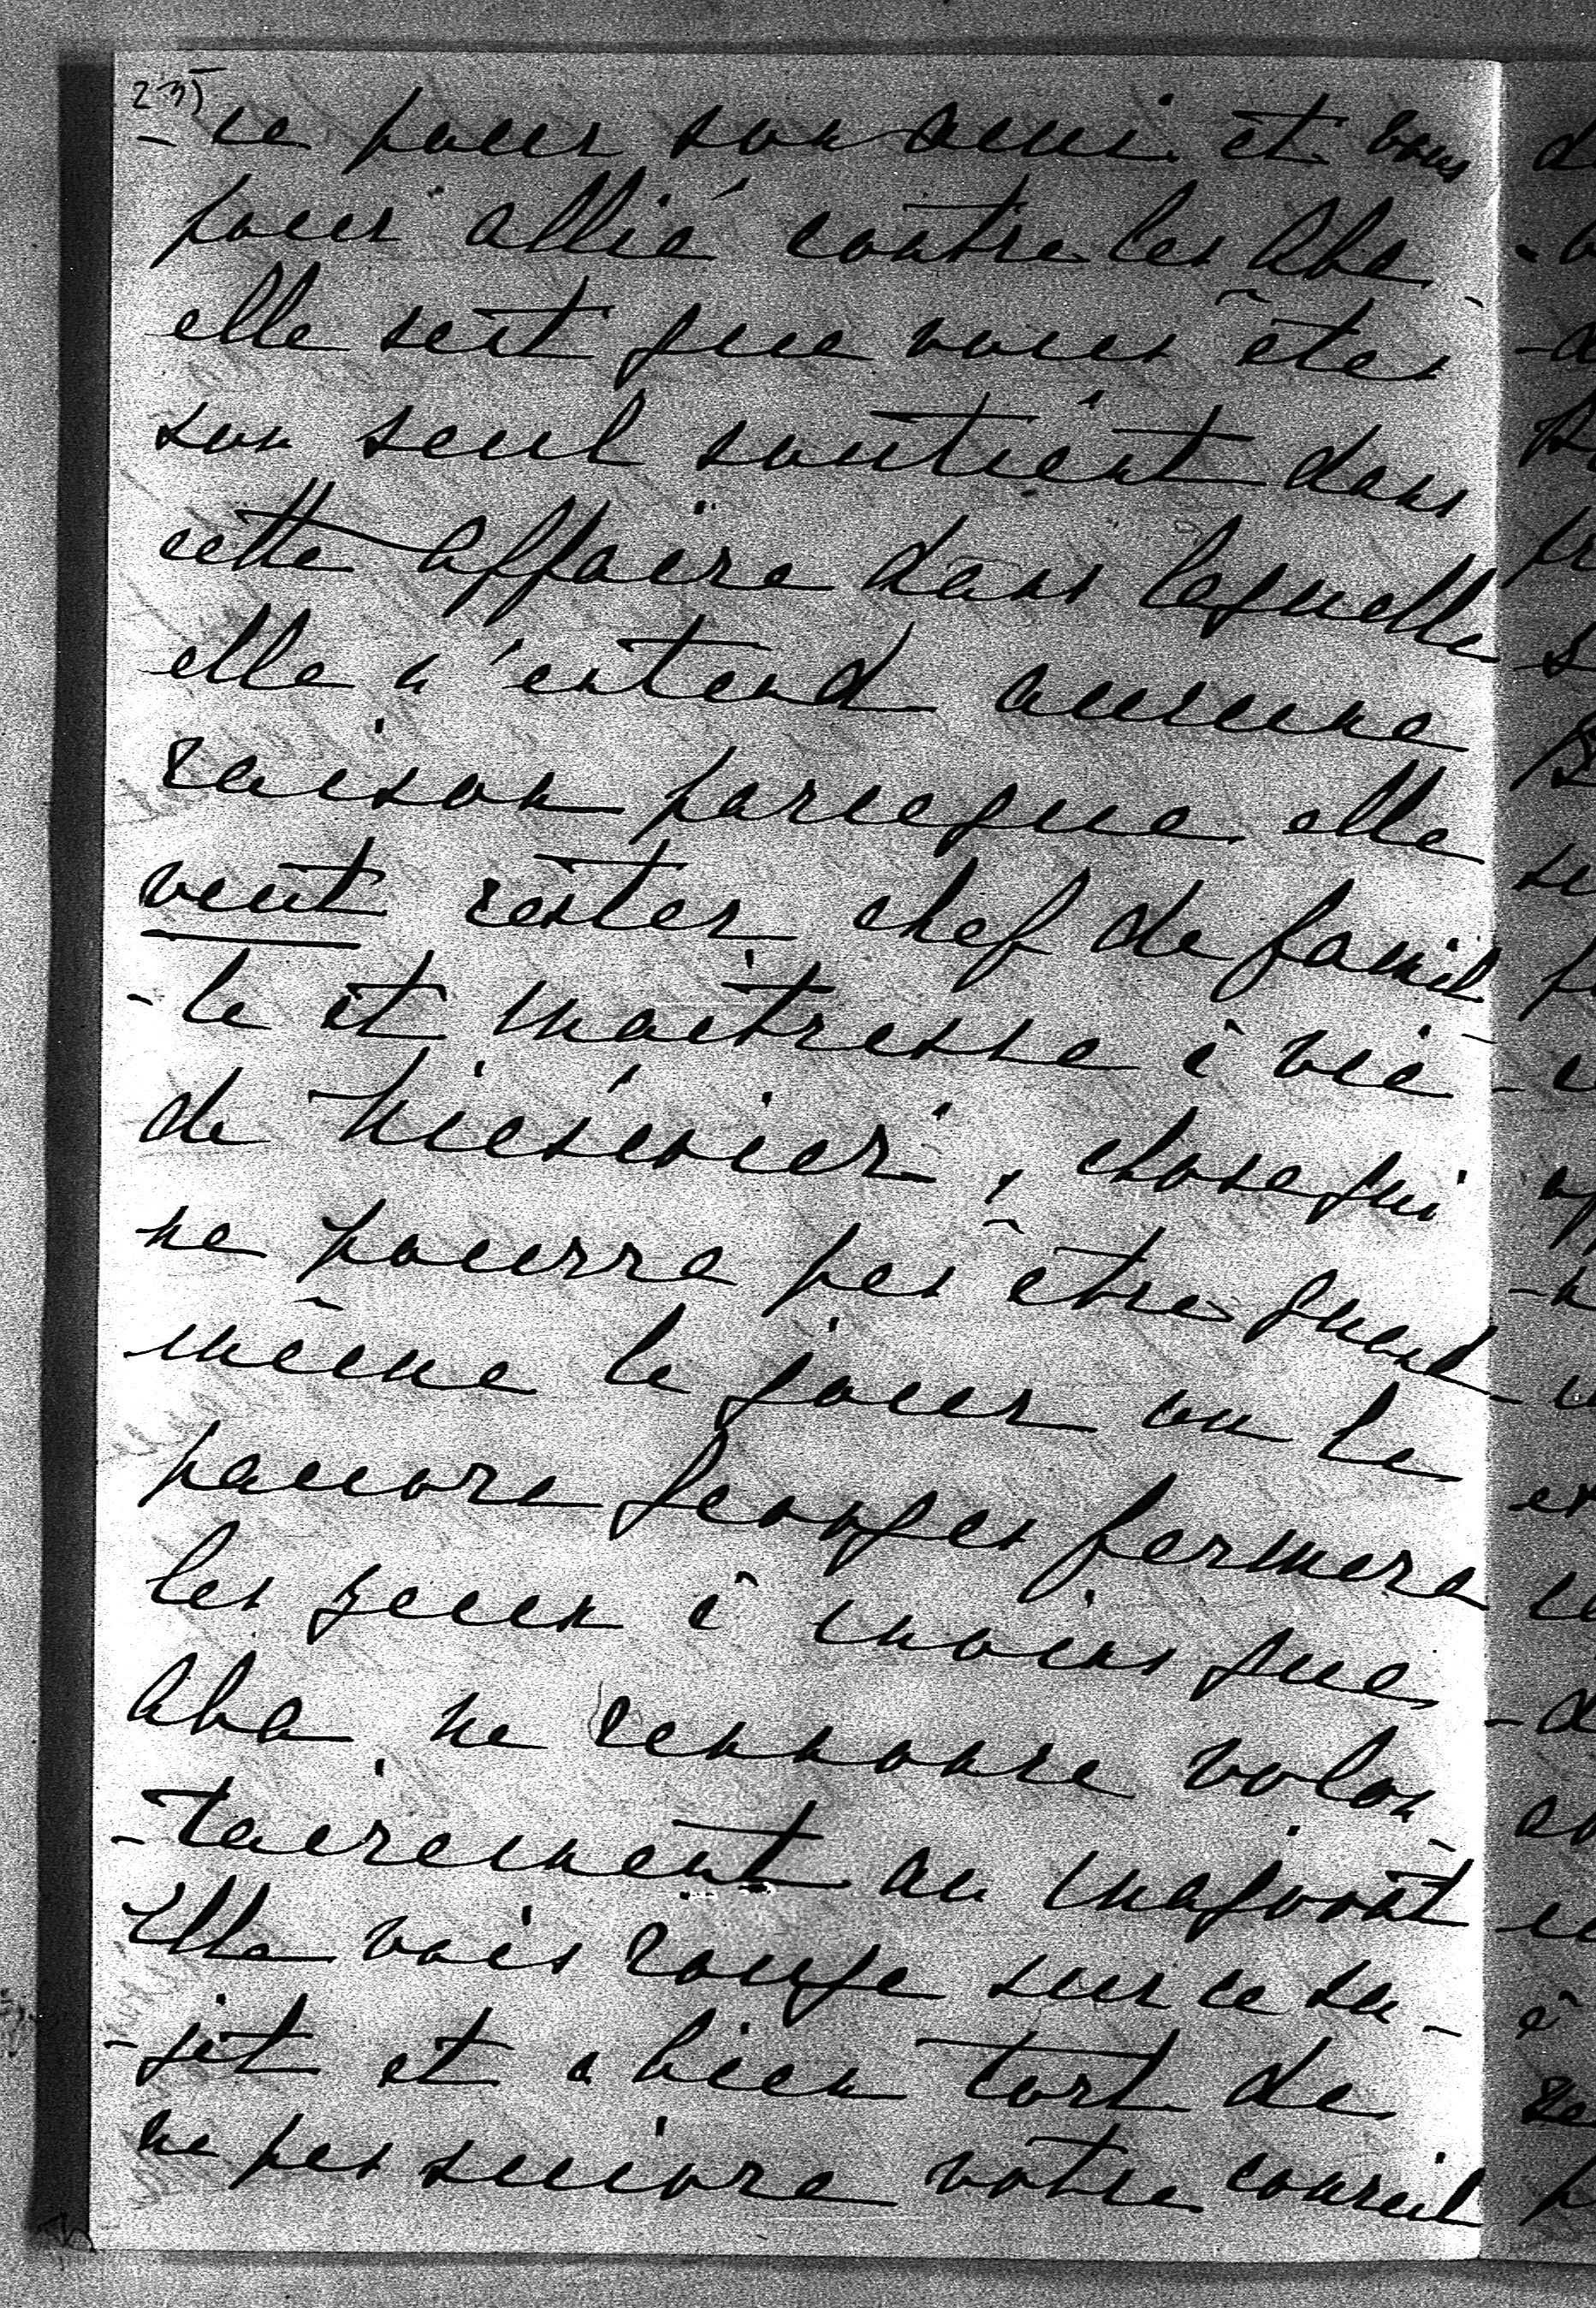 235
- ce pour son ami et vous
pour allié contre les Aba
elle seit que vous êtes
son seul soutient dans
cette affaire dans laquelle
elle n'entend aucune
raison parceque elle
veut rester chef de famil
- le et maîtresse à vie
de                , chose qui
ne pourra pas être quand
même le jour ou le
pauvre Georges fermera
les yeux à moins que
Aba ne rennonce volon
- tairement au majorat
Elle vois rouge sur ce su -
- jet et a bien tort de
ne pas suivre votre conseil